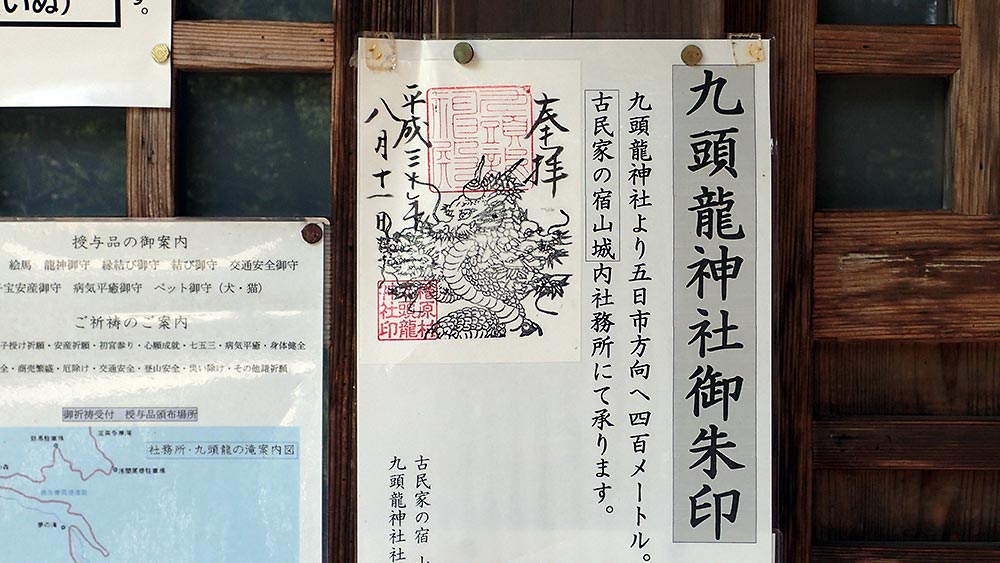 いぬ）
す。
九頭龍神社御朱印
九頭龍神社より五日市方向へ四百メートル。
古民家の宿山城内社務所にて承ります。
奉拝
八月十一日
古民家の宿
九頭龍神社社
授与品の御案内
絵馬　龍神御守　縁結び御守　結び御守　交通安全御守
宝安産御守　病気平癒御守　ペット御守（犬・猫）
ご祈祷のご案内
子授け祈願・安産祈願・初宮参り・心願成就・七五三・病気平癒・身体健全
全・商売繁盛・厄除け・交通安全・登山安全・災い除け・その他諸祈願
御祈祷受付　授与品頒布場所
社務所・九頭龍の滝案内図
浅間尾根駐車場
夢の滝